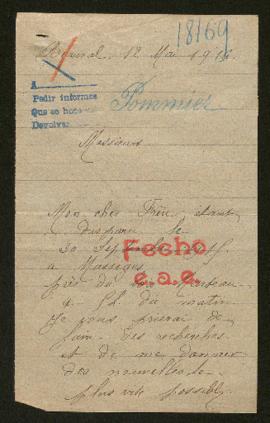 18169
12 Mai 1916
A
Pedir informes
Que se hace
Devolver
Pommier
Messieurs
Mon cher Frère étant
disparu le
30 Septembre
à Massiges
près du
du matin
je vous prierai de
faire des recherches
et de me donner
des nouvelles le
plus vite possible
Fecho
e.a.e.